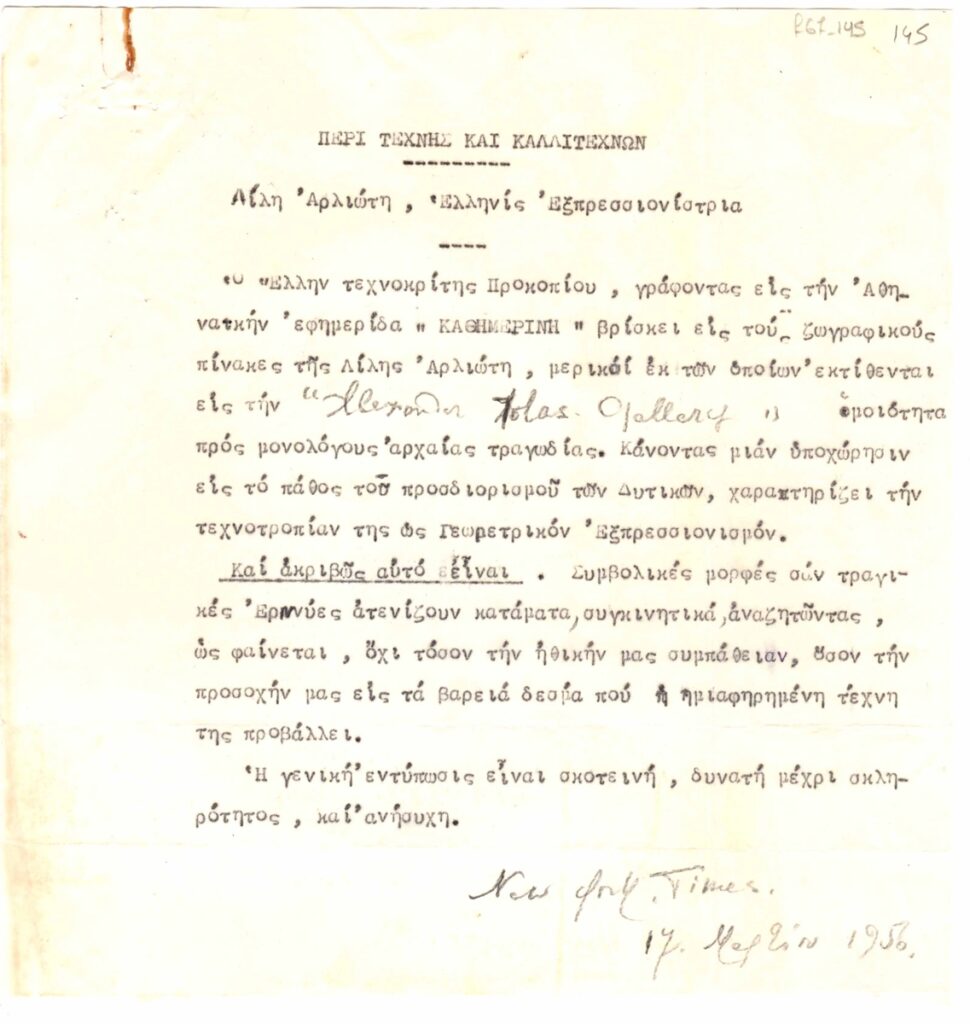 RG1-145 145
ΠΕΡΙ ΤΕΧΝΗΣ ΚΑΙ ΚΑΛΛΙΤΕΧΝΩΝ
Λίλη Ἀρλιώτη , Ἑλληνίς Ἐξπρεσσιονίστρια
Ὁ Ἕλλην τεχνοκρίτης Προκοπίου , γράφοντας εἰς τήν Ἀθη-
ναικήν ἐφημερίδα " ΚΑΘΗΜΕΡΙΝΗ " βρίσκει εἰς τούς ζωγραφικούς
πίνακες τῆς Λίλης Ἀρλιώτη , μερικοί ἐκ τῶν ὁποίων ἐκτίθενται
εἰς τήν "Alexander Iolas Gallery" ὁμοιότητα
πρός μονολόγους ἀρχαίας τραγωδίας. Κάνοντας μιάν ὑποχώρησιν
εἰς τό πάθος τοῦ προσδιορισμοῦ τῶν Δυτικῶν, χαρακτηρίζει τήν
τεχνοτροπίαν της ὡς Γεωμετρικόν Ἐξπρεσσιονισμόν.
Καί ἀκριβῶς αὐτό εἶναι . Συμβολικές μορφές σάν τραγι-
κές Ἐριννύες ἀτενίζουν κατάματα, συγκινητικά, ἀναζητῶντας ,
ὡς φαίνεται , ὄχι τόσον τήν ἠθικήν μας συμπάθειαν, ὅσον τήν
προσοχήν μας εἰς τά βαρειά δεσμά πού ἡ ἡμιαφηρημένη τέχνη
της προβάλλει.
Ἡ γενική ἐντύπωσις εἶναι σκοτεινή , δυνατή μέχρι σκλη-
ρότητος , καί ἀνήσυχη.
New York Times.
17. Μαρτίου 1956.